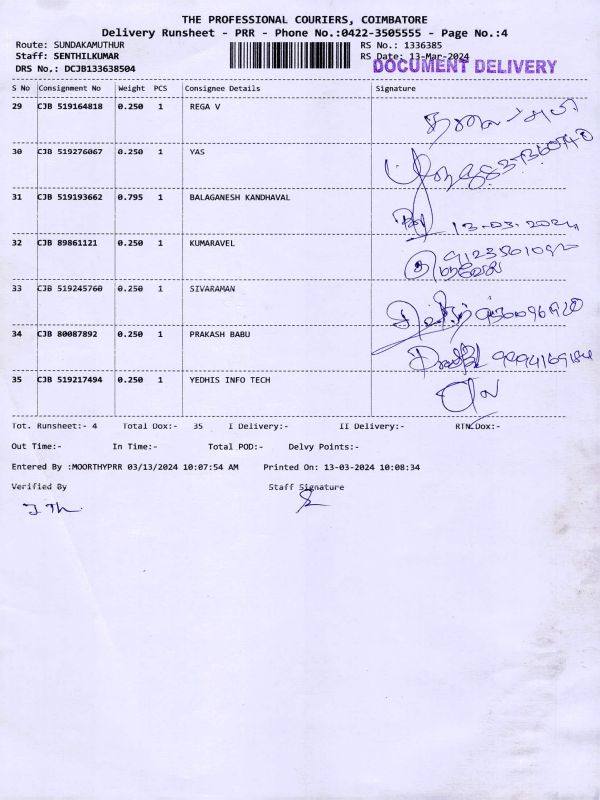 THE PROFESSIONAL COURIERS, COIMBATORE
Delivery Runsheet - PRR - Phone No.:0422-3505555 - Page No.:4
Route: SUNDAKAMUTHUR RS No.: 1336385
Staff: SENTHILKUMAR RS Date: 13-Mar-2024
DRS No.: DCJB133638504 DOCUMENT DELIVERY
S No Consignment No Weight PCS Consignee Details Signature
29 CJB 519164818 0.250 1 REGA V
30 CJB 519276067 0.250 1 YAS
31 CJB 519193662 0.795 1 BALAGANESH KANDHAVAL
13-03-2024
32 CJB 89861121 0.250 1 KUMARAVEL
33 CJB 519245760 0.250 1 SIVARAMAN
34 CJB 80087892 0.250 1 PRAKASH BABU
9994169184
35 CJB 519217494 0.250 1 YEDHIS INFO TECH
Tot. Runsheet:- 4 Total Dox:- 35 I Delivery:- II Delivery:- RTN Dox:-
Out Time:- In Time:- Total POD:- Delvy Points:-
Entered By :MOORTHYPRR 03/13/2024 10:07:54 AM Printed On: 13-03-2024 10:08:34
Verified By Staff Signature